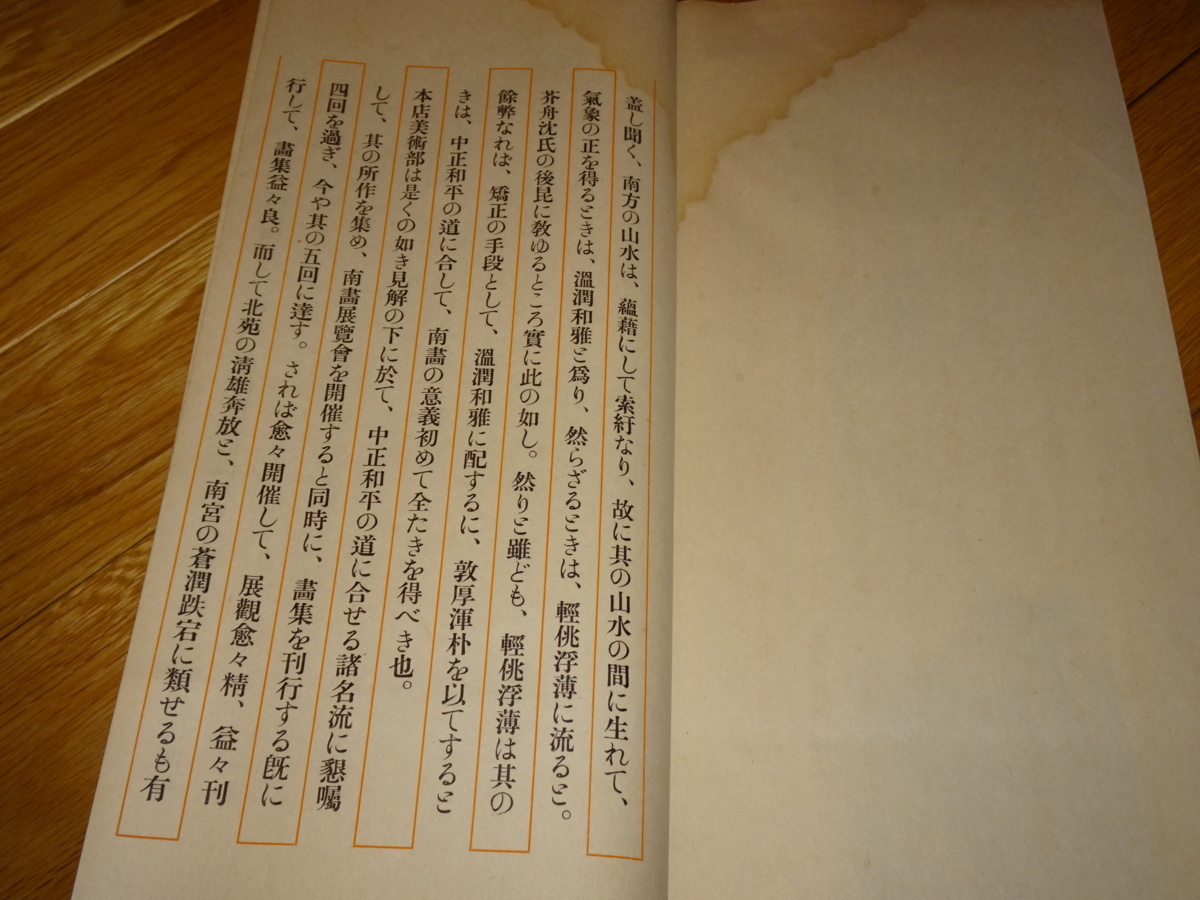 蓋し聞く、南方の山水は、蘊藉にして索紆なり、故に其の山水の間に生れて、
氣象の正を得るときは、溫潤和雅と爲り、然らざるときは、輕佻浮薄に流ると。
芥舟沈氏の後昆に敎ゆるところ實に此の如し。然りと雖ども、輕佻浮薄は其の
餘弊なれば、矯正の手段として、溫潤和雅に配するに、敦厚渾朴を以てすると
きは、中正和平の道に合して、南畵の意義初めて全たきを得べき也。
本店美術部は是くの如き見解の下に於て、中正和平の道に合せる諸名流に懇囑
して、其の所作を集め、南畵展覽會を開催すると同時に、畵集を刊行する旣に
四回を過ぎ、今や其の五回に達す。されば愈々開催して、展觀愈々精、益々刊
行して、畵集益々良。而して北苑の淸雄奔放と、南宮の蒼潤跌宕に類せるも有